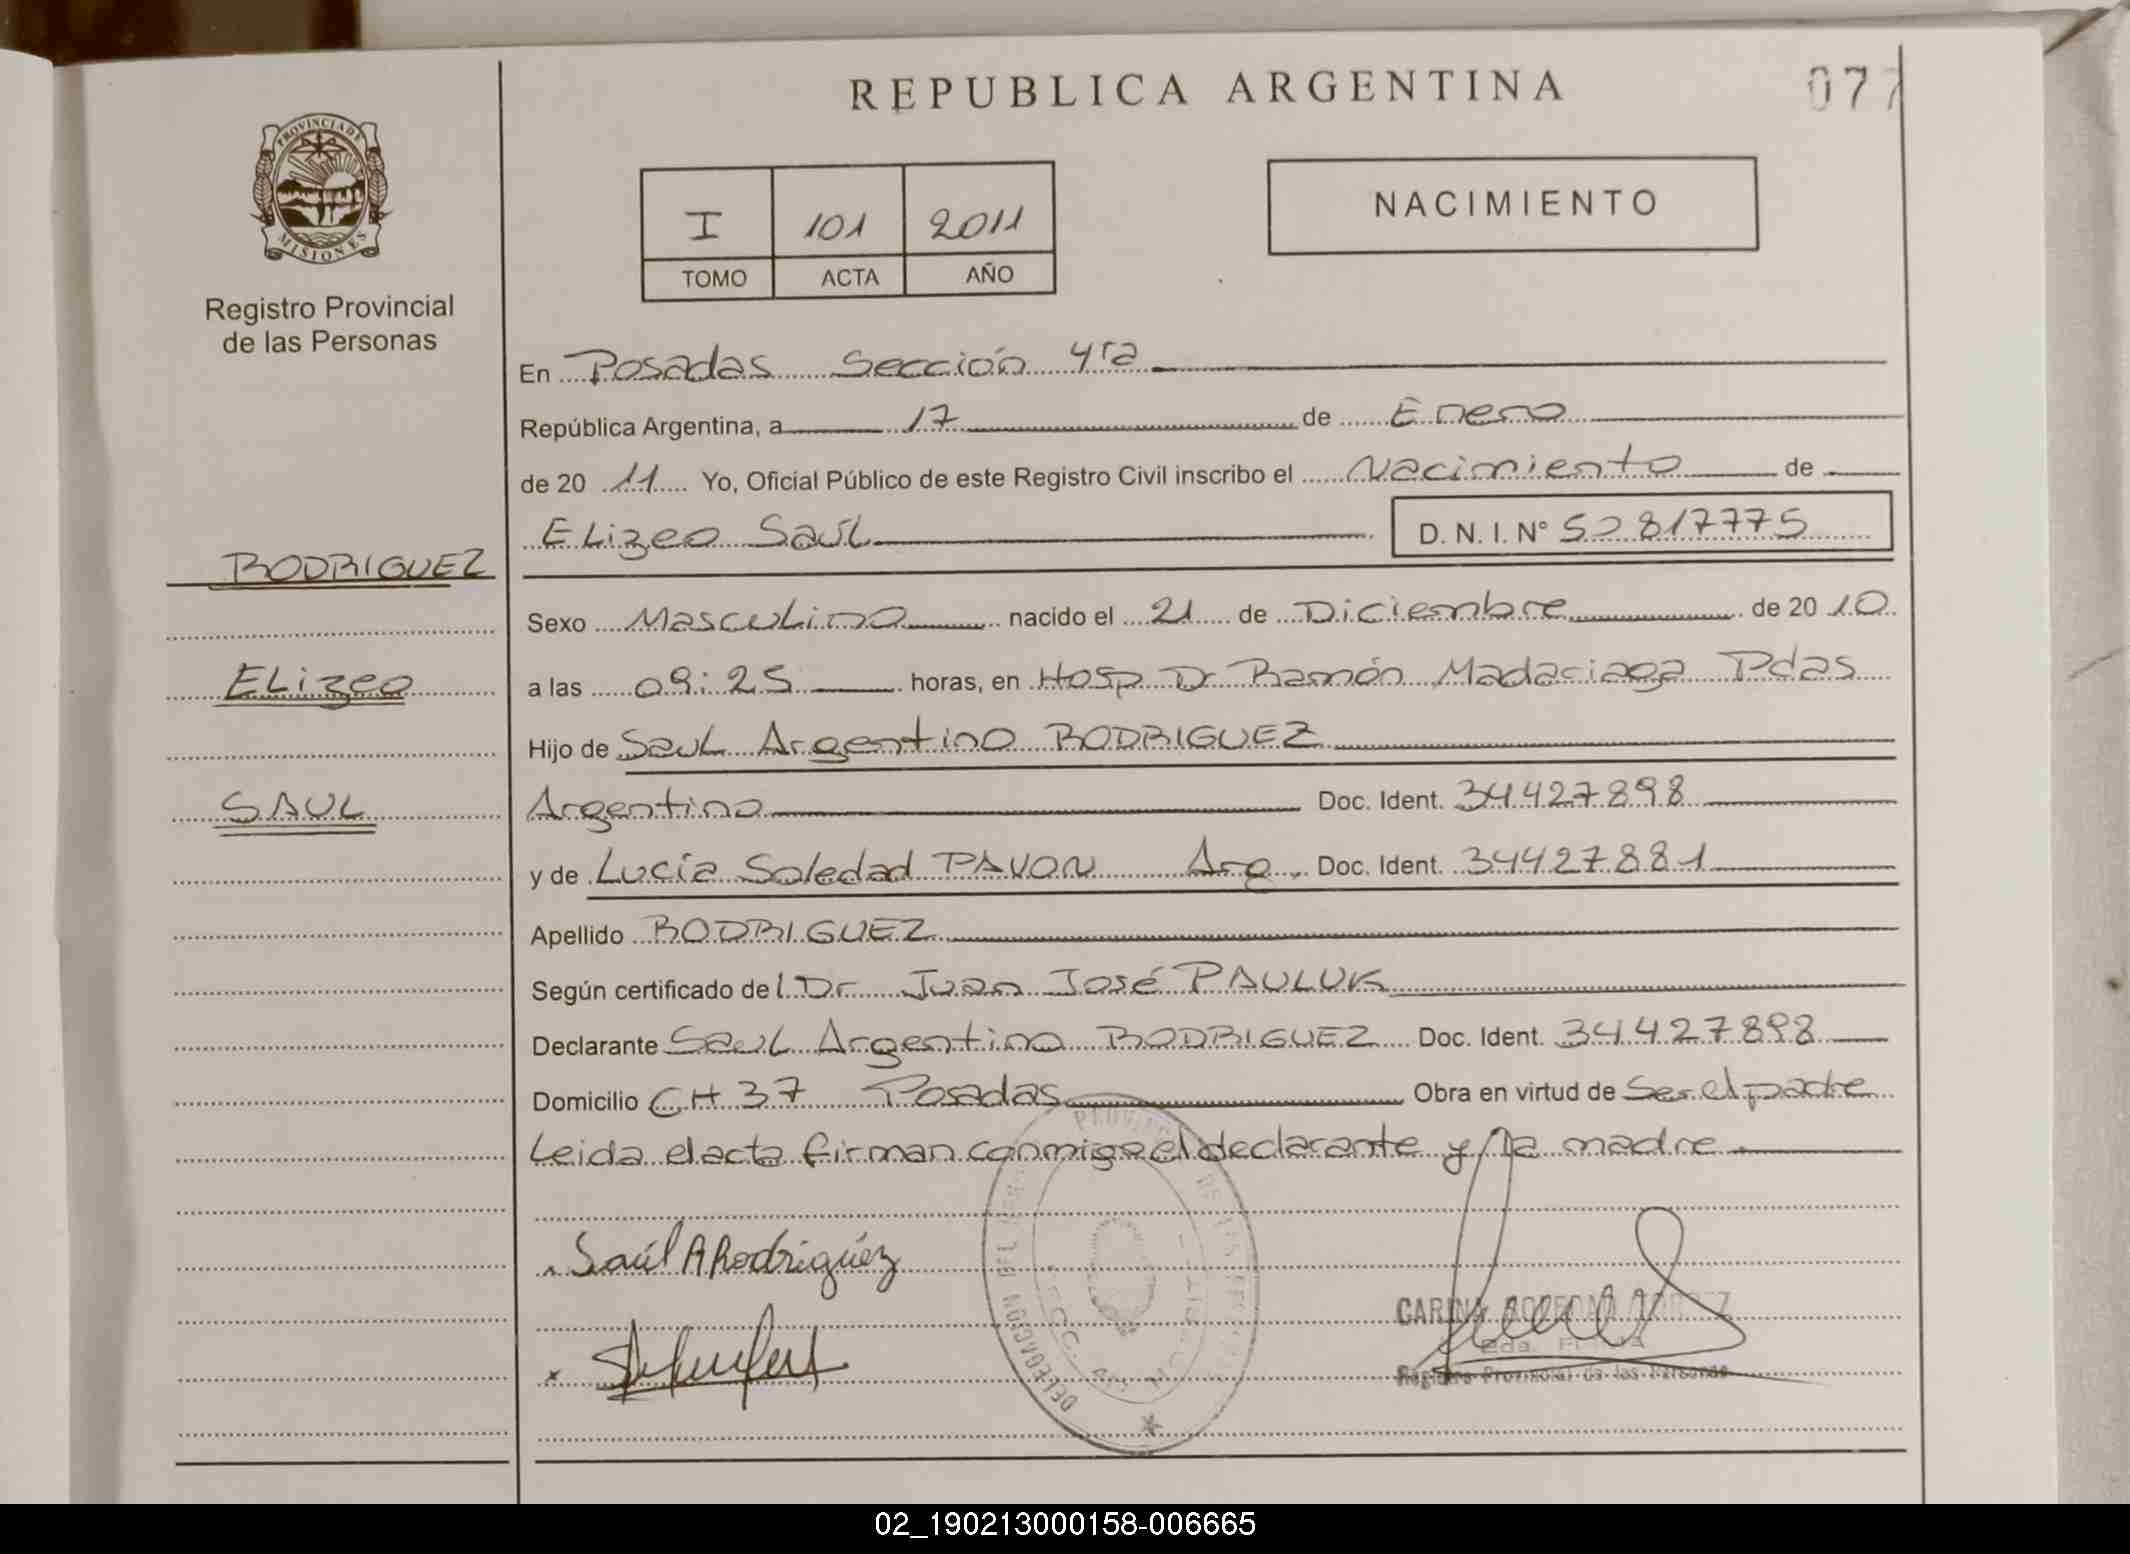 REPUBLICA ARGENTINA
077
PROVINCIA DE
MISIONES
Registro Provincial
de las Personas
I 101 2011
TOMO ACTA AÑO
NACIMIENTO
En Posadas Sección 4ta
República Argentina, a 17 de Enero
de 2011 Yo, Oficial Público de este Registro Civil inscribo el Nacimiento de
Elizeo Saúl D. N. I. N° 52817775
RODRIGUEZ
Elizeo
SAUL
Sexo Masculino nacido el 21 de Diciembre de 2010
a las 09:25 horas, en Hosp Dr Ramón Madaciaga Pdas
Hijo de Saul Argentino RODRIGUEZ
Argentino Doc. Ident. 34427898
y de Lucía Soledad PAVON Arg. Doc. Ident. 34427881
Apellido RODRIGUEZ
Según certificado del Dr Juan José PAULUK
Declarante Saul Argentino RODRIGUEZ Doc. Ident. 34427898
Domicilio CH 37 Posadas Obra en virtud de Ser el padre
Leida el acta firman conmigo el declarante y la madre
Saúl A Rodriguéz
DELEGACION DEL
Registro Provincial de las Personas
02_190213000158-006665